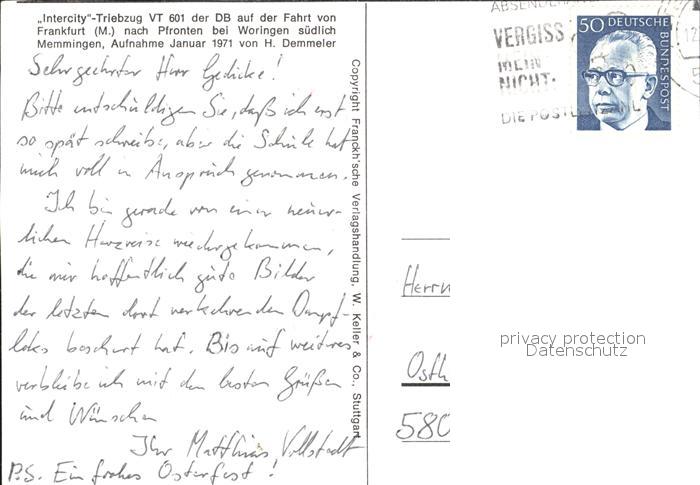 „Intercity"-Triebzug VT 601 der DB auf der Fahrt von
Frankfurt (M.) nach Pfronten bei Woringen südlich
Memmingen, Aufnahme Januar 1971 von H. Demmeler
Sehr geehrter Herr Gedicke!
Bitte entschuldigen Sie, daß ich erst
so spät schreibe, aber die Schule hat
mich voll in Anspruch genommen.
Ich bin gerade von einer neuer-
lichen Harzreise wiedergekommen,
die mir hoffentlich gute Bilder
der letzten dort verkehrenden Dampf-
loks beschert hat. Bis auf weiteres
verbleibe ich mit den besten Grüßen
und Wünschen
Ihr Matthias Vollstedt
P.S. Ein frohes Osterfest!
Copyright Franckh'sche Verlagshandlung, W. Keller & Co., Stuttgart
ABSENDER
VERGISS
MEIN
NICHT.
DIE POSTLEITZAHL
50 DEUTSCHE
BUNDESPOST
12
5
Herrn
Osth
580
privacy protection
Datenschutz